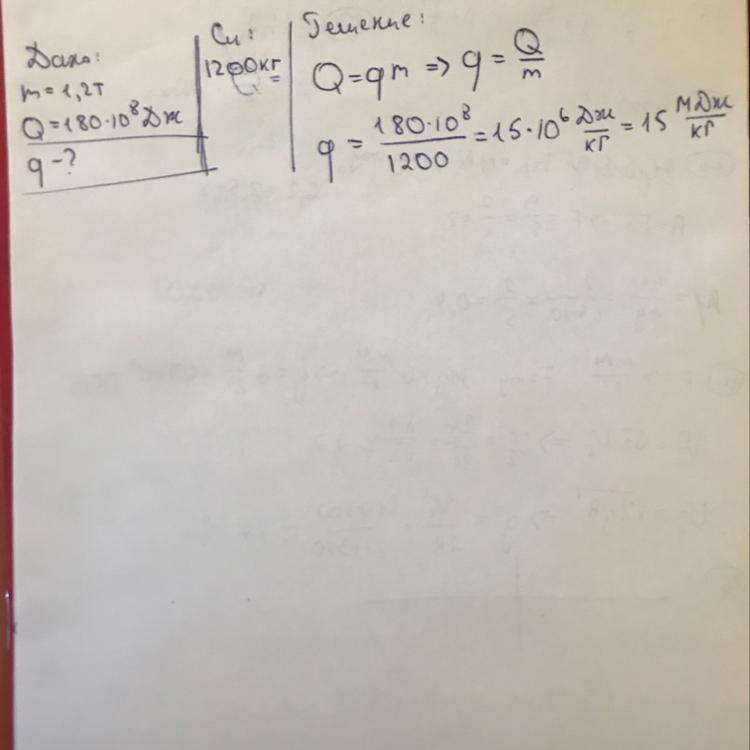 Дано:
m = 1,2т
Q = 180·10⁸ Дж
q - ?
Си:
1200кг
Решение:
Q = qm => q = Q/m
q = 180·10⁸/1200 = 15·10⁶ Дж/кг = 15 МДж/кг